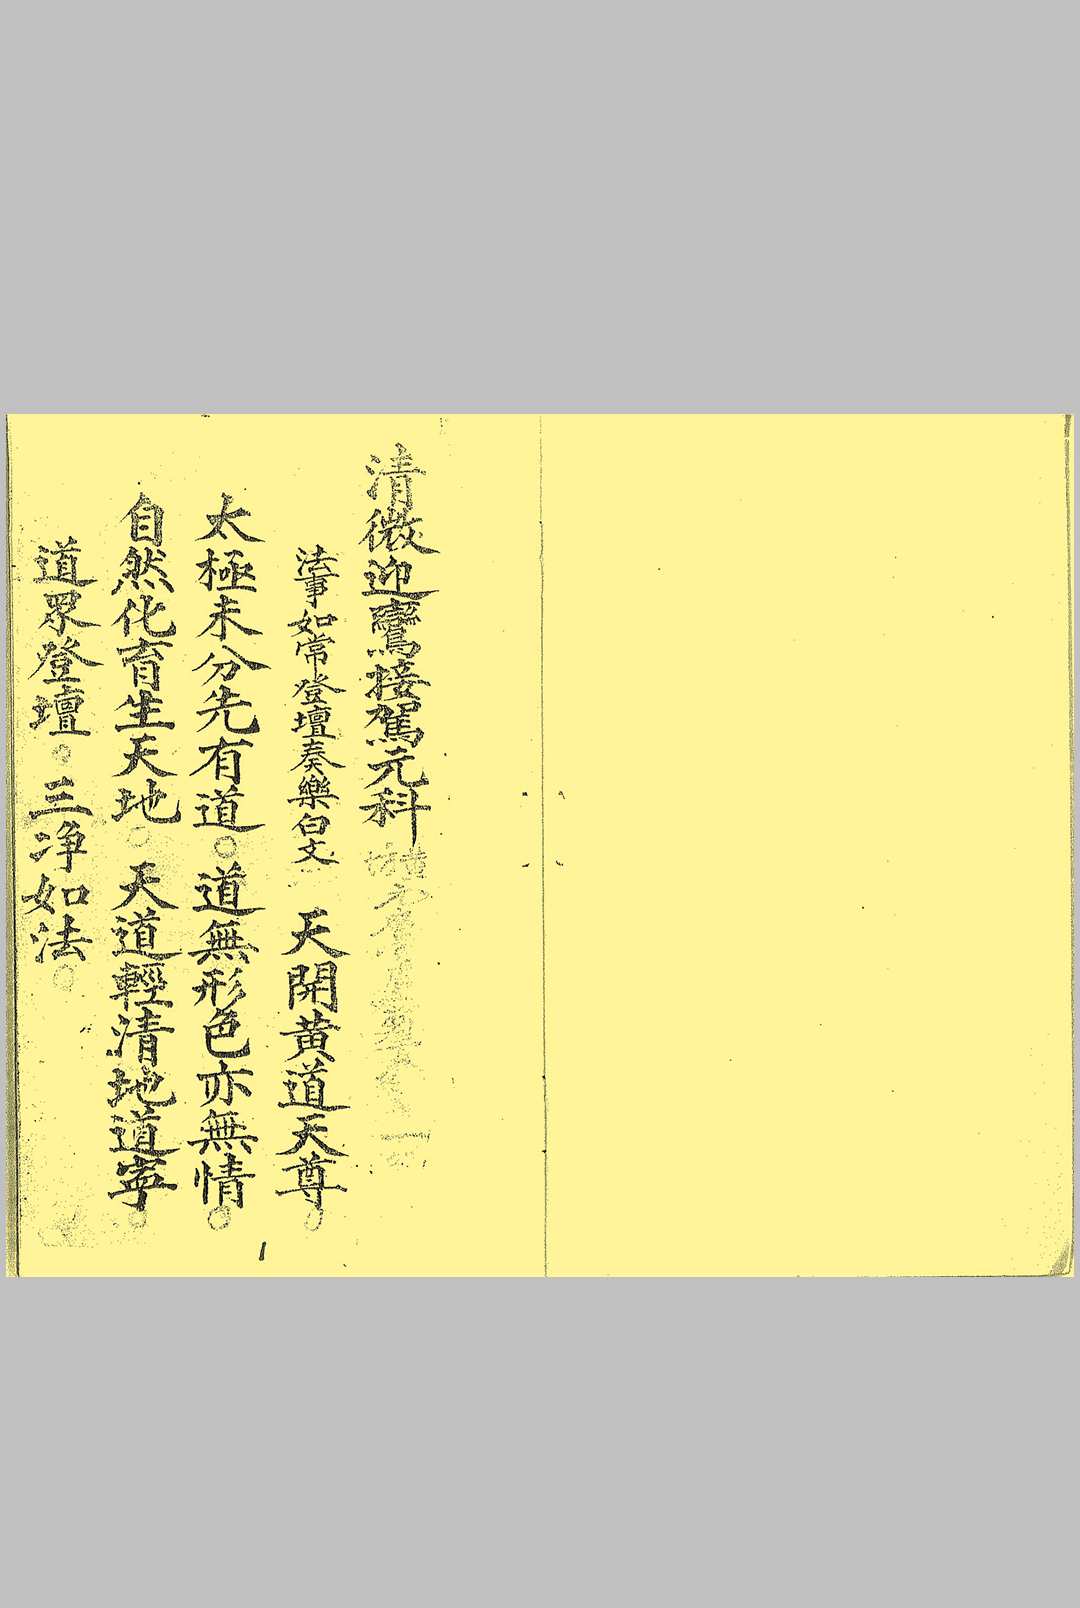 清微迎鸞接駕元科
法事如常登壇奏樂白文　天開黃道天尊○
太極未分先有道○道無形色亦無情○
自然化育生天地○天道輕清地道寧○
道眾登壇○三淨如法○
1